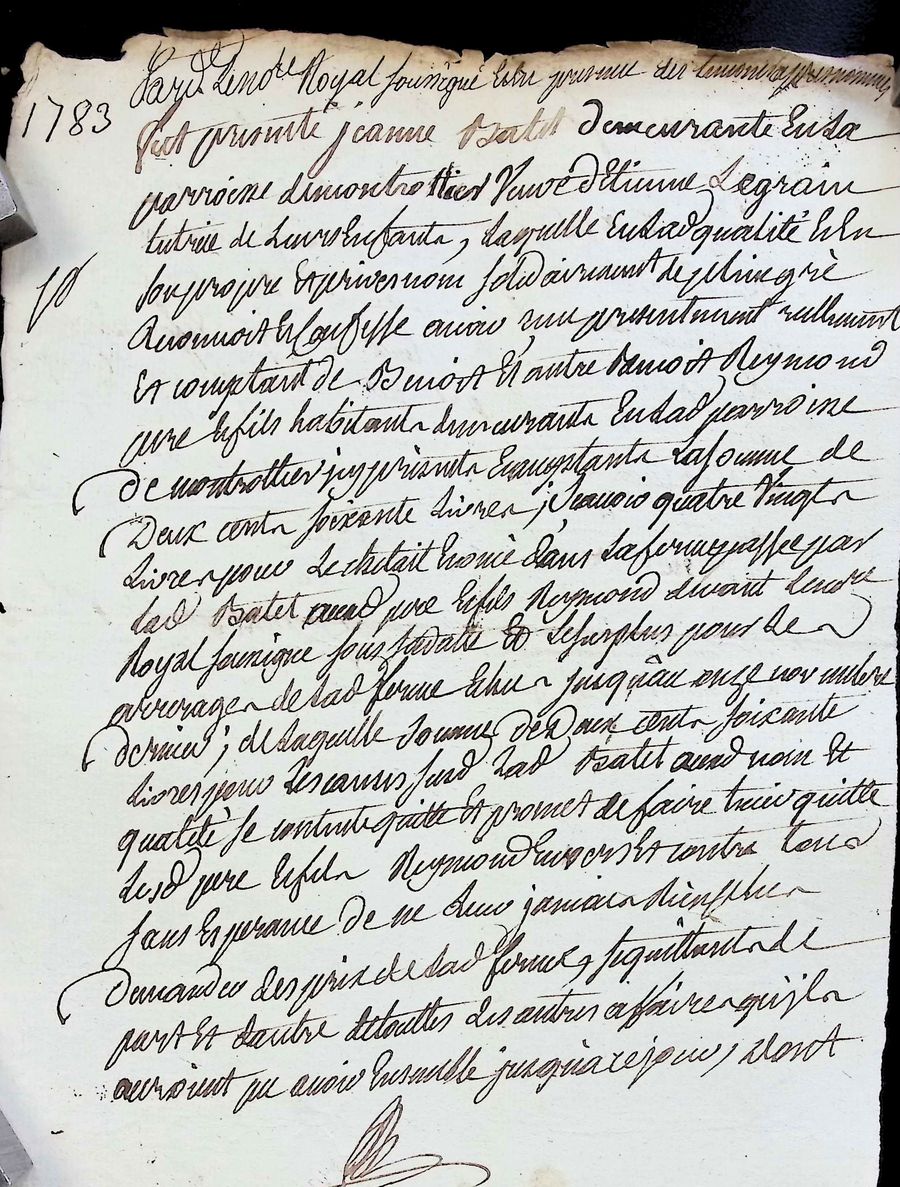 Pard. Le no.re Royal soussigné et en presence des temoins apres nommes
1783
fut presente jeanne Batet demeurante en La
parroisse de montrottier Veuve d'Etienne Legrain
tutrice de Leurs Enfants, Laquelle En Lad qualité et En
son propre Et privé nom solidairement de plein gré
Reconnoit et Confesse avoir reçu presentement reellement
Et comptant de Benoit Et autre Benoit Reymond
pere et fils habitants demeurants En Lad parroisse
De montrottier icy presents Et acceptants La somme de
Deux cents soixante Livres, sçavoir quatre Vingts
Livres pour Le chetail Enoncé dans La ferme passée par
Lad Batet auxd pere et fils Reymond devant Le no.re
Royal soussigné sous sa date Et Le surplus pour Les
arrerages de Lad ferme Echus jusqu'au onze novembre
dernier; de Laquelle somme de Deux cents soixante
Livres pour Les causes susd Lad Batet auxd nom Et
qualité se contente quitte Et promet de faire tenir quitte
Lesd pere et fils Reymond Envers Et contre tous
sans Esperance de ne Leur jamais Rien plus
Demander des prix de Lad ferme, se quittants de
part Et dautre de touttes Les autres affaires qu'ils
auroient pu avoir Ensemble jusqu'à ce jour, dont